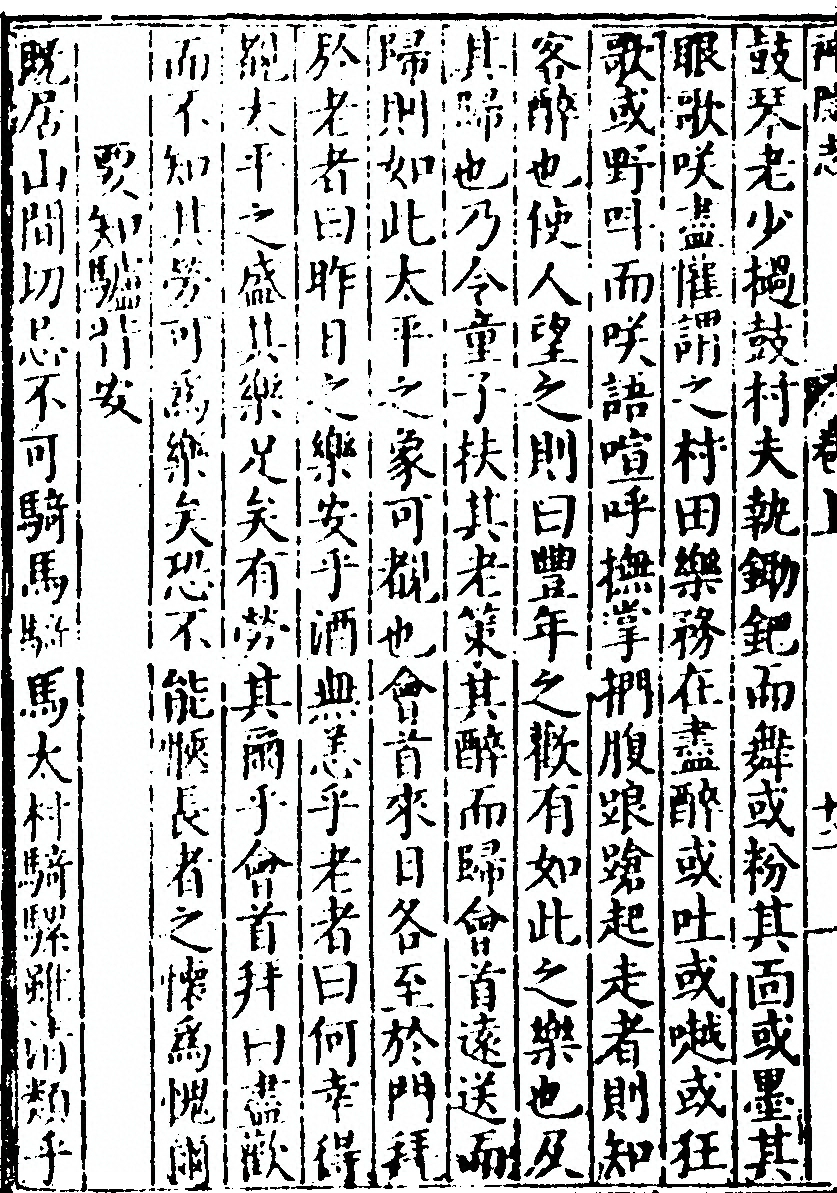 鼓琴老少撾鼓村夫執鋤鈀而舞或粉其面或墨其
眼歌咲盡懽謂之村田樂務在盡醉或吐或噦或狂
歌或野呌而咲語喧呼撫掌捫腹踉蹌起走者則知
客醉也使人望之則曰豐年之歡有如此之樂也及
其歸也乃令童子扶其老策其醉而歸會首遠送而
歸則如此太平之象可觀也會首來日各至於門拜
於老者曰昨日之樂安乎酒無恙乎老者曰何幸得
觀太平之盛其樂足矣有勞其爾乎會首拜曰盡歡
而不知其勞可爲樂矣恐不能愜長者之懷爲愧爾
買知驢行安
既居山間切忌不可騎馬騎馬太村騎騾雖清類乎
卷上
十二